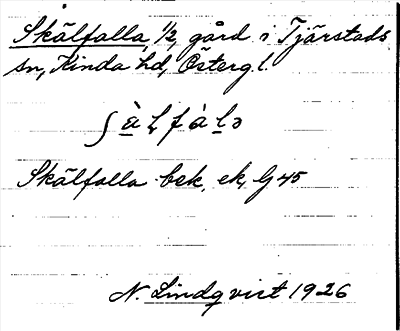 Skälfalla, 1/2, gård i Tjärstads
sn, Kinda hd, Österg.l.
ʃàl̥fàlə
Skälfalla bek. ek. G 45
N. Lindqvist 1926